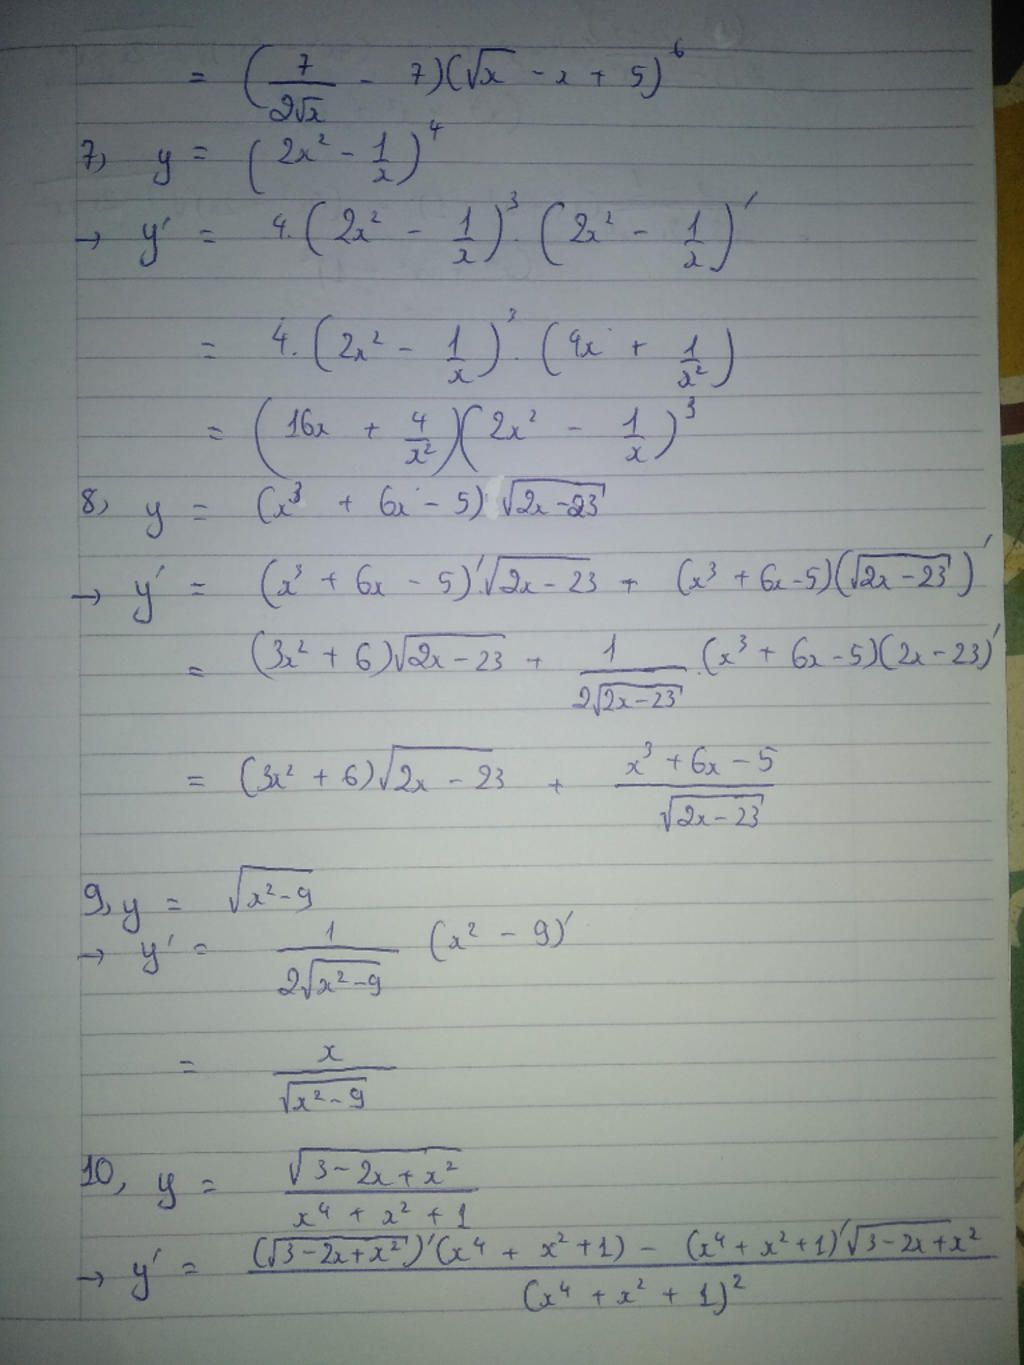 = (7/(2√x) - 7)(√x - x + 5)^6
7, y = (2x² - 1/x)^4
→ y' = 4.(2x² - 1/x)³.(2x² - 1/x)'
= 4.(2x² - 1/x)³.(4x + 1/x²)
= (16x + 4/x²)(2x² - 1/x)³
8, y = (x³ + 6x - 5)√(2x-23)
→ y' = (x³ + 6x - 5)'.√(2x-23) + (x³ + 6x - 5)(√(2x-23))'
= (3x² + 6)√(2x-23) + 1/(2√(2x-23)).(x³ + 6x - 5)(2x - 23)'
= (3x² + 6)√(2x - 23) + (x³ + 6x - 5)/√(2x-23)
9, y = √(x²-9)
→ y' = 1/(2√(x²-9)) (x² - 9)'
= x/√(x²-9)
10, y = √(3-2x+x²)/(x⁴ + x² + 1)
→ y' = ((√(3-2x+x²))'(x⁴ + x² + 1) - (x⁴ + x² + 1)'√(3-2x+x²))/(x⁴ + x² + 1)²